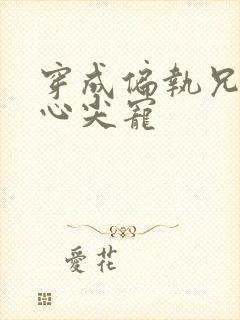 穿成偏執兄
心尖寵
愛花